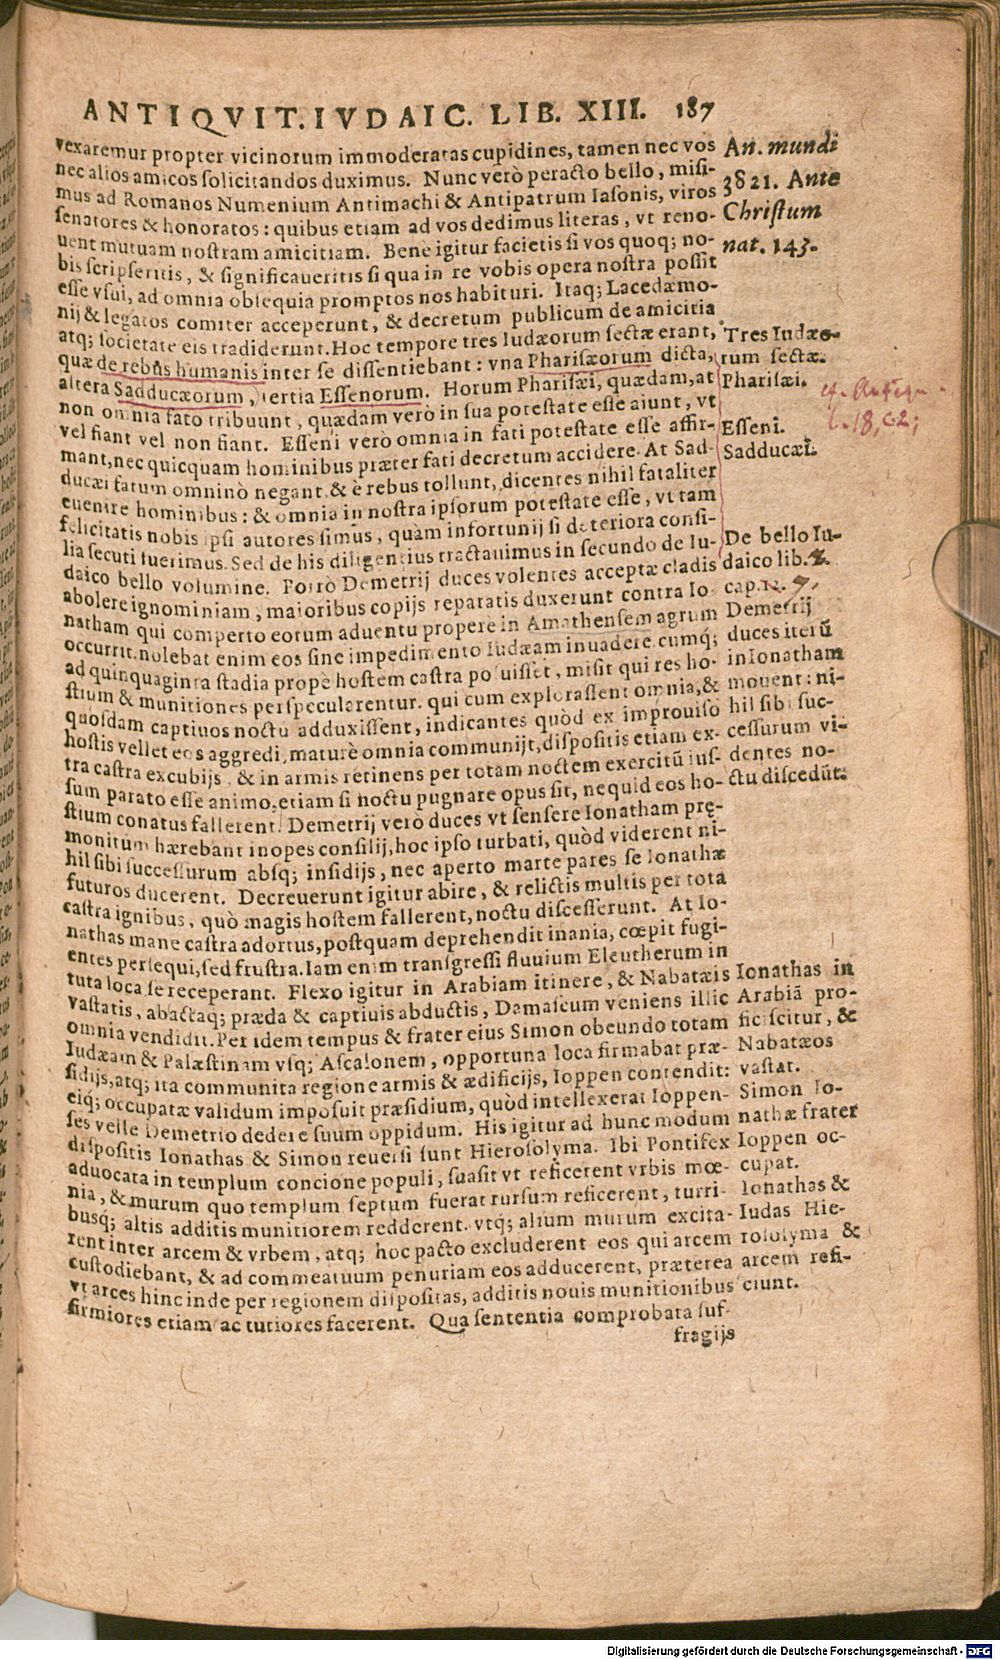 ANTIQVIT. IVDAIC. LIB. XIII. 187
vexaremur propter vicinorum immoderatas cupidines, tamen nec vos
nec alios amicos solicitandos duximus. Nunc verò peracto bello, misi-
mus ad Romanos Numenium Antimachi & Antipatrum Iasonis, viros
senatores & honoratos: quibus etiam ad vos dedimus literas, vt reno-
uent mutuam nostram amicitiam. Bene igitur facietis si vos quoq; no-
bis scripseritis, & significaueritis si qua in re vobis opera nostra possit
esse vsui, ad omnia obsequia promptos nos habituri. Itaq; Lacedæmo-
nij & legatos comiter acceperunt, & decretum publicum de amicitia
atq; societate eis tradiderunt. Hoc tempore tres Iudæorum sectæ erant,
quæ de rebus humanis inter se dissentiebant: vna Pharisæorum dicta,
altera Sadducæorum, tertia Essenorum. Horum Pharisæi, quædam, at
non omnia fato tribuunt, quædam verò in sua potestate esse aiunt, vt
vel fiant vel non fiant. Esseni verò omnia in fati potestate esse affir-
mant, nec quicquam hominibus præter fati decretum accidere. At Sad-
ducæi fatum omninò negant & è rebus tollunt, dicentes nihil fataliter
euenire hominibus: & omnia in nostra ipsorum potestate esse, vt tam
felicitatis nobis ipsi autores simus, quàm infortunij si deteriora consi-
lia secuti fuerimus. Sed de his diligentius tractauimus in secundo de Iu-
daico bello volumine. Porrò Demetrij duces volentes acceptæ cladis
abolere ignominiam, maioribus copijs reparatis duxerunt contra Io-
natham qui comperto eorum aduentu propere in Amathensem agrum
occurrit. nolebat enim eos sine impedimento Iudæam inuadere. cumq;
ad quinquaginta stadia propè hostem castra posuisset, misit qui res ho-
stium & munitiones perspecularentur. qui cum explorassent omnia, &
quosdam captiuos noctu adduxissent, indicantes quòd ex improuiso
hostis vellet eos aggredi, maturè omnia communijt, dispositis etiam ex-
tra castra excubijs, & in armis retinens per totam noctem exercitū ius-
sum parato esse animo, etiam si noctu pugnare opus sit, nequid eos ho-
stium conatus fallerent. Demetrij verò duces vt sensere Ionatham prę-
monitum hærebant inopes consilij, hoc ipso turbati, quòd viderent ni-
hil sibi successurum absq; insidijs, nec aperto marte pares se Ionathæ
futuros ducerent. Decreuerunt igitur abire, & relictis multis per tota
castra ignibus, quò magis hostem fallerent, noctu discesserunt. At Io-
nathas mane castra adortus, postquam deprehendit inania, cœpit fugi-
entes persequi, sed frustra. Iam enim transgressi fluuium Eleutherum in
tuta loca se receperant. Flexo igitur in Arabiam itinere, & Nabatæis
vastatis, abactaq; præda & captiuis abductis, Damascum veniens illic
omnia vendidit. Per idem tempus & frater eius Simon obeundo totam
Iudæam & Palæstinam vsq; Ascalonem, opportuna loca firmabat præ-
sidijs, atq; ita communita regione armis & ædificijs, Ioppen contendit:
eiq; occupatæ validum imposuit præsidium, quòd intellexerat Ioppen-
ses velle Demetrio dedere suum oppidum. His igitur ad hunc modum
dispositis Ionathas & Simon reuersi sunt Hierosolyma. Ibi Pontifex
aduocata in templum concione populi, suasit vt reficerent vrbis mœ-
nia, & murum quo templum septum fuerat rursum reficerent, turri-
busq; altis additis munitiorem redderent. vtq; alium murum excita-
rent inter arcem & vrbem, atq; hoc pacto excluderent eos qui arcem
custodiebant, & ad commeatuum penuriam eos adducerent, præterea
vt arces hinc inde per regionem dispositas, additis nouis munitionibus
firmiores etiam ac tutiores facerent. Qua sententia comprobata suf-
fragijs
An. mundi
3821. Ante
Christum
nat. 143.
Tres Iudæo-
rum sectæ.
Pharisæi.
Esseni.
Sadducæi.
l. 18, c2;
De bello Iu-
daico lib. 2.
cap. 12. 7.
Demetrij
duces iterū
in Ionatham
mouent: ni-
hil sibi suc-
cessurum vi-
dentes no-
ctu discedūt.
Ionathas in
Arabiā pro-
ficiscitur, &
Nabatæos
vastat.
Simon Io-
nathæ frater
Ioppen oc-
cupat.
Ionathas &
Iudas Hie-
rosolyma &
arcem refi-
ciunt.
Digitalisierung gefördert durch die Deutsche Forschungsgemeinschaft - DFG